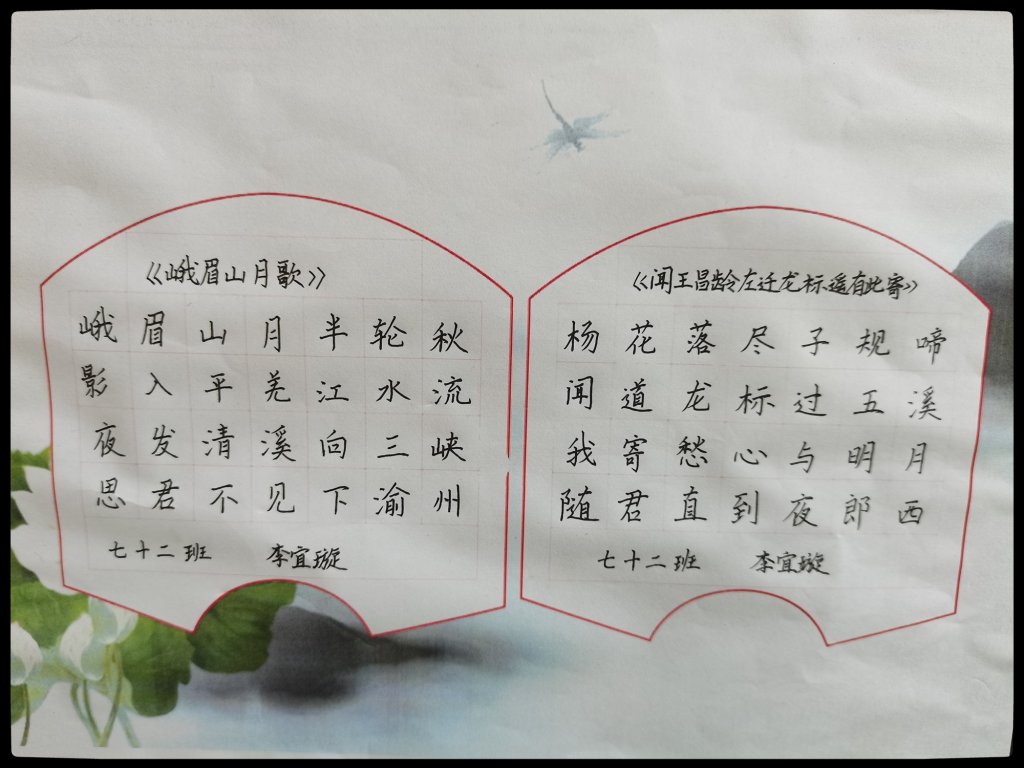 《峨眉山月歌》
峨眉山月半轮秋
影入平羌江水流
夜发清溪向三峡
思君不见下渝州
七十二班 李宜璇
《闻王昌龄左迁龙标遥有此寄》
杨花落尽子规啼
闻道龙标过五溪
我寄愁心与明月
随君直到夜郎西
七十二班 李宜璇